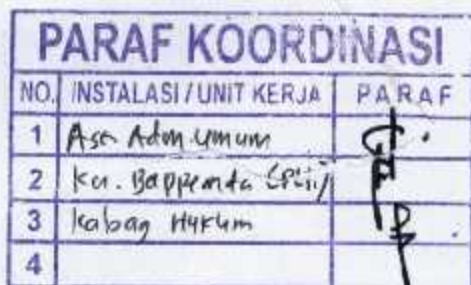 PARAF KOORDINASI
NO. INSTALASI / UNIT KERJA PARAF
1 Ass Adm Umum
2 Ka. Bappenda
3 Kabag Hukum
4